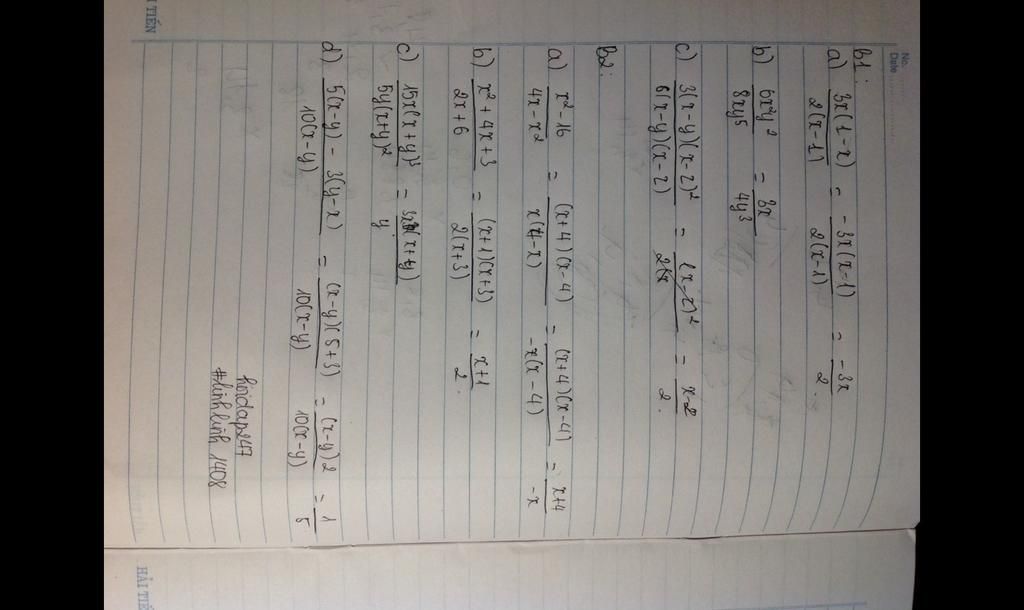 No.
Date
B1:
a) 3x(1-x)/2(x-1) = -3x(x-1)/2(x-1) = -3x/2.
b) 6x²y²/8xy⁵ = 3x/4y³
c) 3(x-y)(x-2)²/6(x-y)(x-2) = (x-2)²/2 = x-2/2.
B2:
a) x²-16/4x-x² = (x+4)(x-4)/x(4-x) = (x+4)(x-4)/-x(x-4) = x+4/-x
b) x²+4x+3/2x+6 = (x+1)(x+3)/2(x+3) = x+1/2.
c) 15x(x+y)³/5y(x+y)² = 3x(x+y)/y
d) 5(x-y)-3(y-x)/10(x-y) = (x-y)(5+3)/10(x-y) = (x-y)2/10(x-y) = 1/5
hoidap247
#linhlinh1408
HẢI TIẾN
HẢI TIẾ